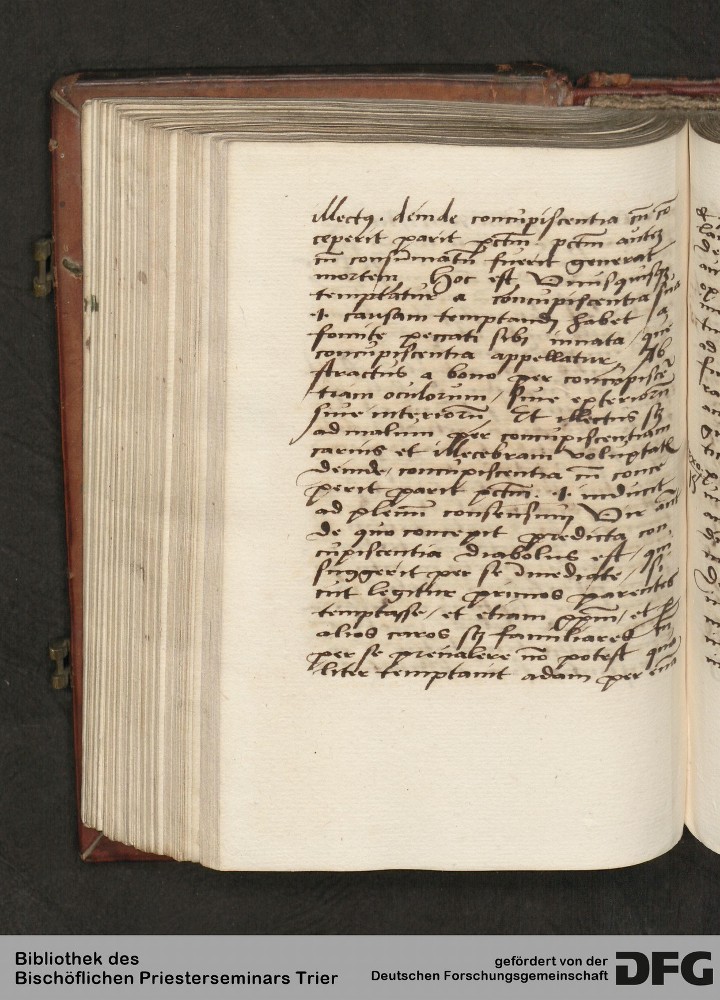 illectꝯ. deinde concupiscentia cū cō
ceperit parit pctm̄. pctm̄ autē
cū consūmatū fuerit generat
mortem Hoc est Vnusquisqꝫ
temptatur a concupiscentia sua
.i. causam temptandj habet a
fomite peccati sibj innata / que
concupiscentia appellatur, Ab
stractus a bono per concupiscē
tiam oculorum / siue exteriorū
siue interiorū Et illectus sꝫ
ad malum per concupiscentiam
carnis et illecebram voluptatꝭ
deinde, concupiscentia cū conce
perit parit pctm̄. .i. inducit
ad plenū consensum Vn̄
de quo concepit predicta con
cupiscentia diabolus est / qui
suggerit per se īmediate / si
cut legitur primos parentes
temptasse / et etiam xp̄m / et
alios caros sꝫ familiares
per se preualere nō potest quā
liter temptauit adam per euā
Bibliothek des
Bischöflichen Priesterseminars Trier
gefördert von der
Deutschen Forschungsgemeinschaft
DFG